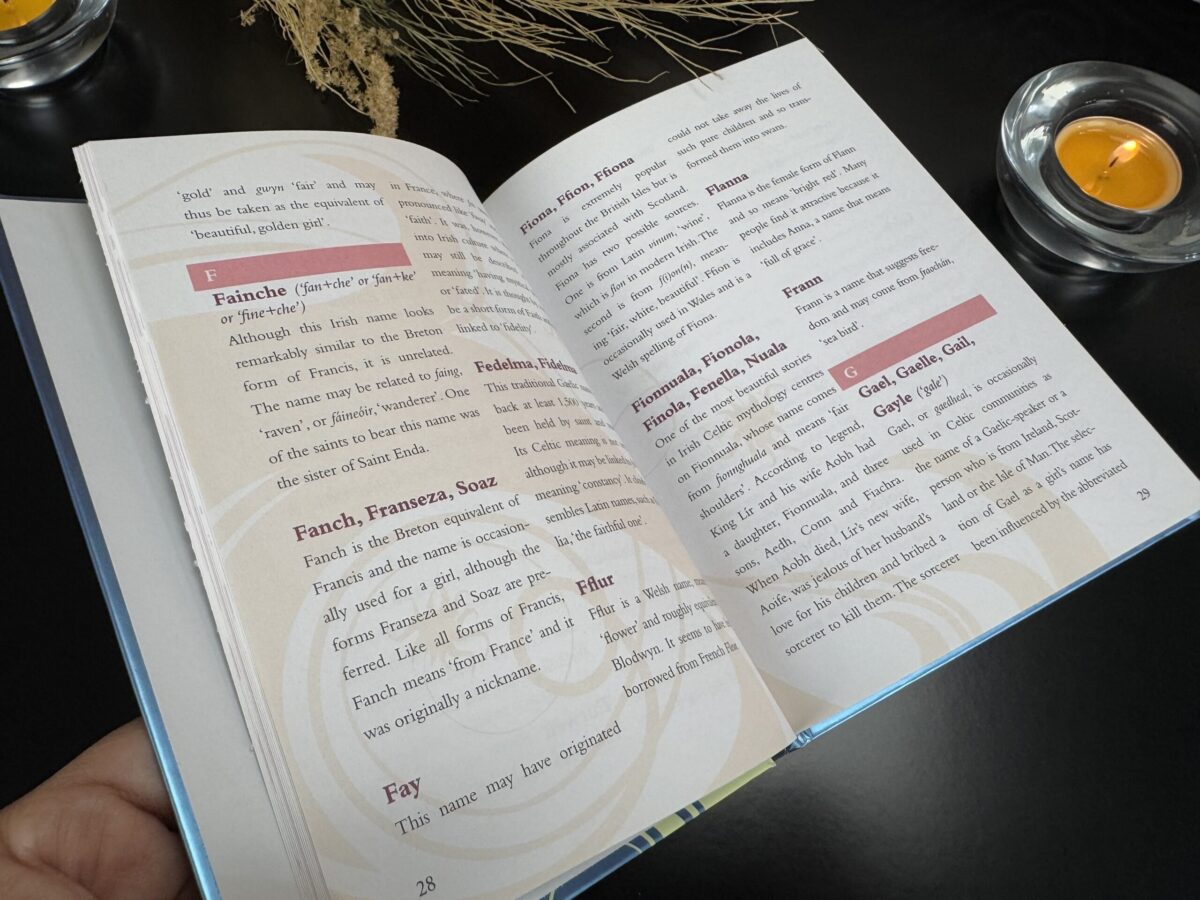 'gold' and gwyn 'fair' and may
thus be taken as the equivalent of
'beautiful, golden girl'.
F
Fainche ('fan+che' or 'fan+ke'
or 'fine+che')
Although this Irish name looks
remarkably similar to the Breton
form of Francis, it is unrelated.
The name may be related to faing,
'raven', or fáineóir, 'wanderer'. One
of the saints to bear this name was
the sister of Saint Enda.
Fanch, Franseza, Soaz
Fanch is the Breton equivalent of
Francis and the name is occasion-
ally used for a girl, although the
forms Franseza and Soaz are pre-
ferred. Like all forms of Francis,
Fanch means 'from France' and it
was originally a nickname.
Fay
This name may have originated
28
in France, where
pronounced like
'faith'. It was,
into Irish culture
may still be described
meaning 'having
or 'fated'. It is thought
be a short form of Faith,
linked to 'fidelity'.
Fedelma, Fidelma
This traditional Gaelic
back at least 1,500
been held by saint and
Its Celtic meaning is
although it may be linked
meaning 'constancy'. It
sembles Latin names, such
lia, 'the faithful one'.
Fflur
Fflur is a Welsh name,
'flower' and roughly
Blodwyn. It seems to have
borrowed from French
Fiona, Ffion, Ffiona
Fiona is extremely popular
throughout the British Isles but is
mostly associated with Scotland.
Fiona has two possible sources.
One is from Latin vinum, 'wine',
which is fion in modern Irish. The
second is from f(i)on(n), mean-
ing 'fair, white, beautiful'. Ffion is
occasionally used in Wales and is a
Welsh spelling of Fiona.
Fionnuala, Fionola,
Finola, Fenella, Nuala
One of the most beautiful stories
in Irish Celtic mythology centres
on Fionnuala, whose name comes
from fionnghuala and means 'fair
shoulders'. According to legend,
King Lir and his wife Aobh had
a daughter, Fionnuala, and three
sons, Aedh, Conn and Fiachra.
When Aobh died, Lir's new wife,
Aoife, was jealous of her husband's
love for his children and bribed a
sorcerer to kill them. The sorcerer
could not take away the lives of
such pure children and so trans-
formed them into swans.
Flanna
Flanna is the female form of Flann
and so means 'bright red'. Many
people find it attractive because it
includes Anna, a name that means
'full of grace'.
Frann
Frann is a name that suggests free-
dom and may come from fraochán,
'sea bird'.
G
Gael, Gaelle, Gail,
Gayle ('gale')
Gael, or gaedheal, is occasionally
used in Celtic communities as
the name of a Gaelic-speaker or a
person who is from Ireland, Scot-
land or the Isle of Man. The selec-
tion of Gael as a girl's name has
been influenced by the abbreviated
29